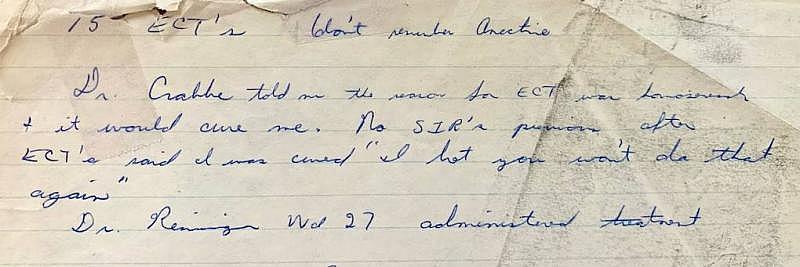 15 ECT's don't remember Anectine
Dr. Crabbe told me the reason for ECT was homosexuality
+ it would cure me. No SIR's previous after
ECT's said I was cured "I bet you won't do that
again"
Dr. Wd 27 administered treatment